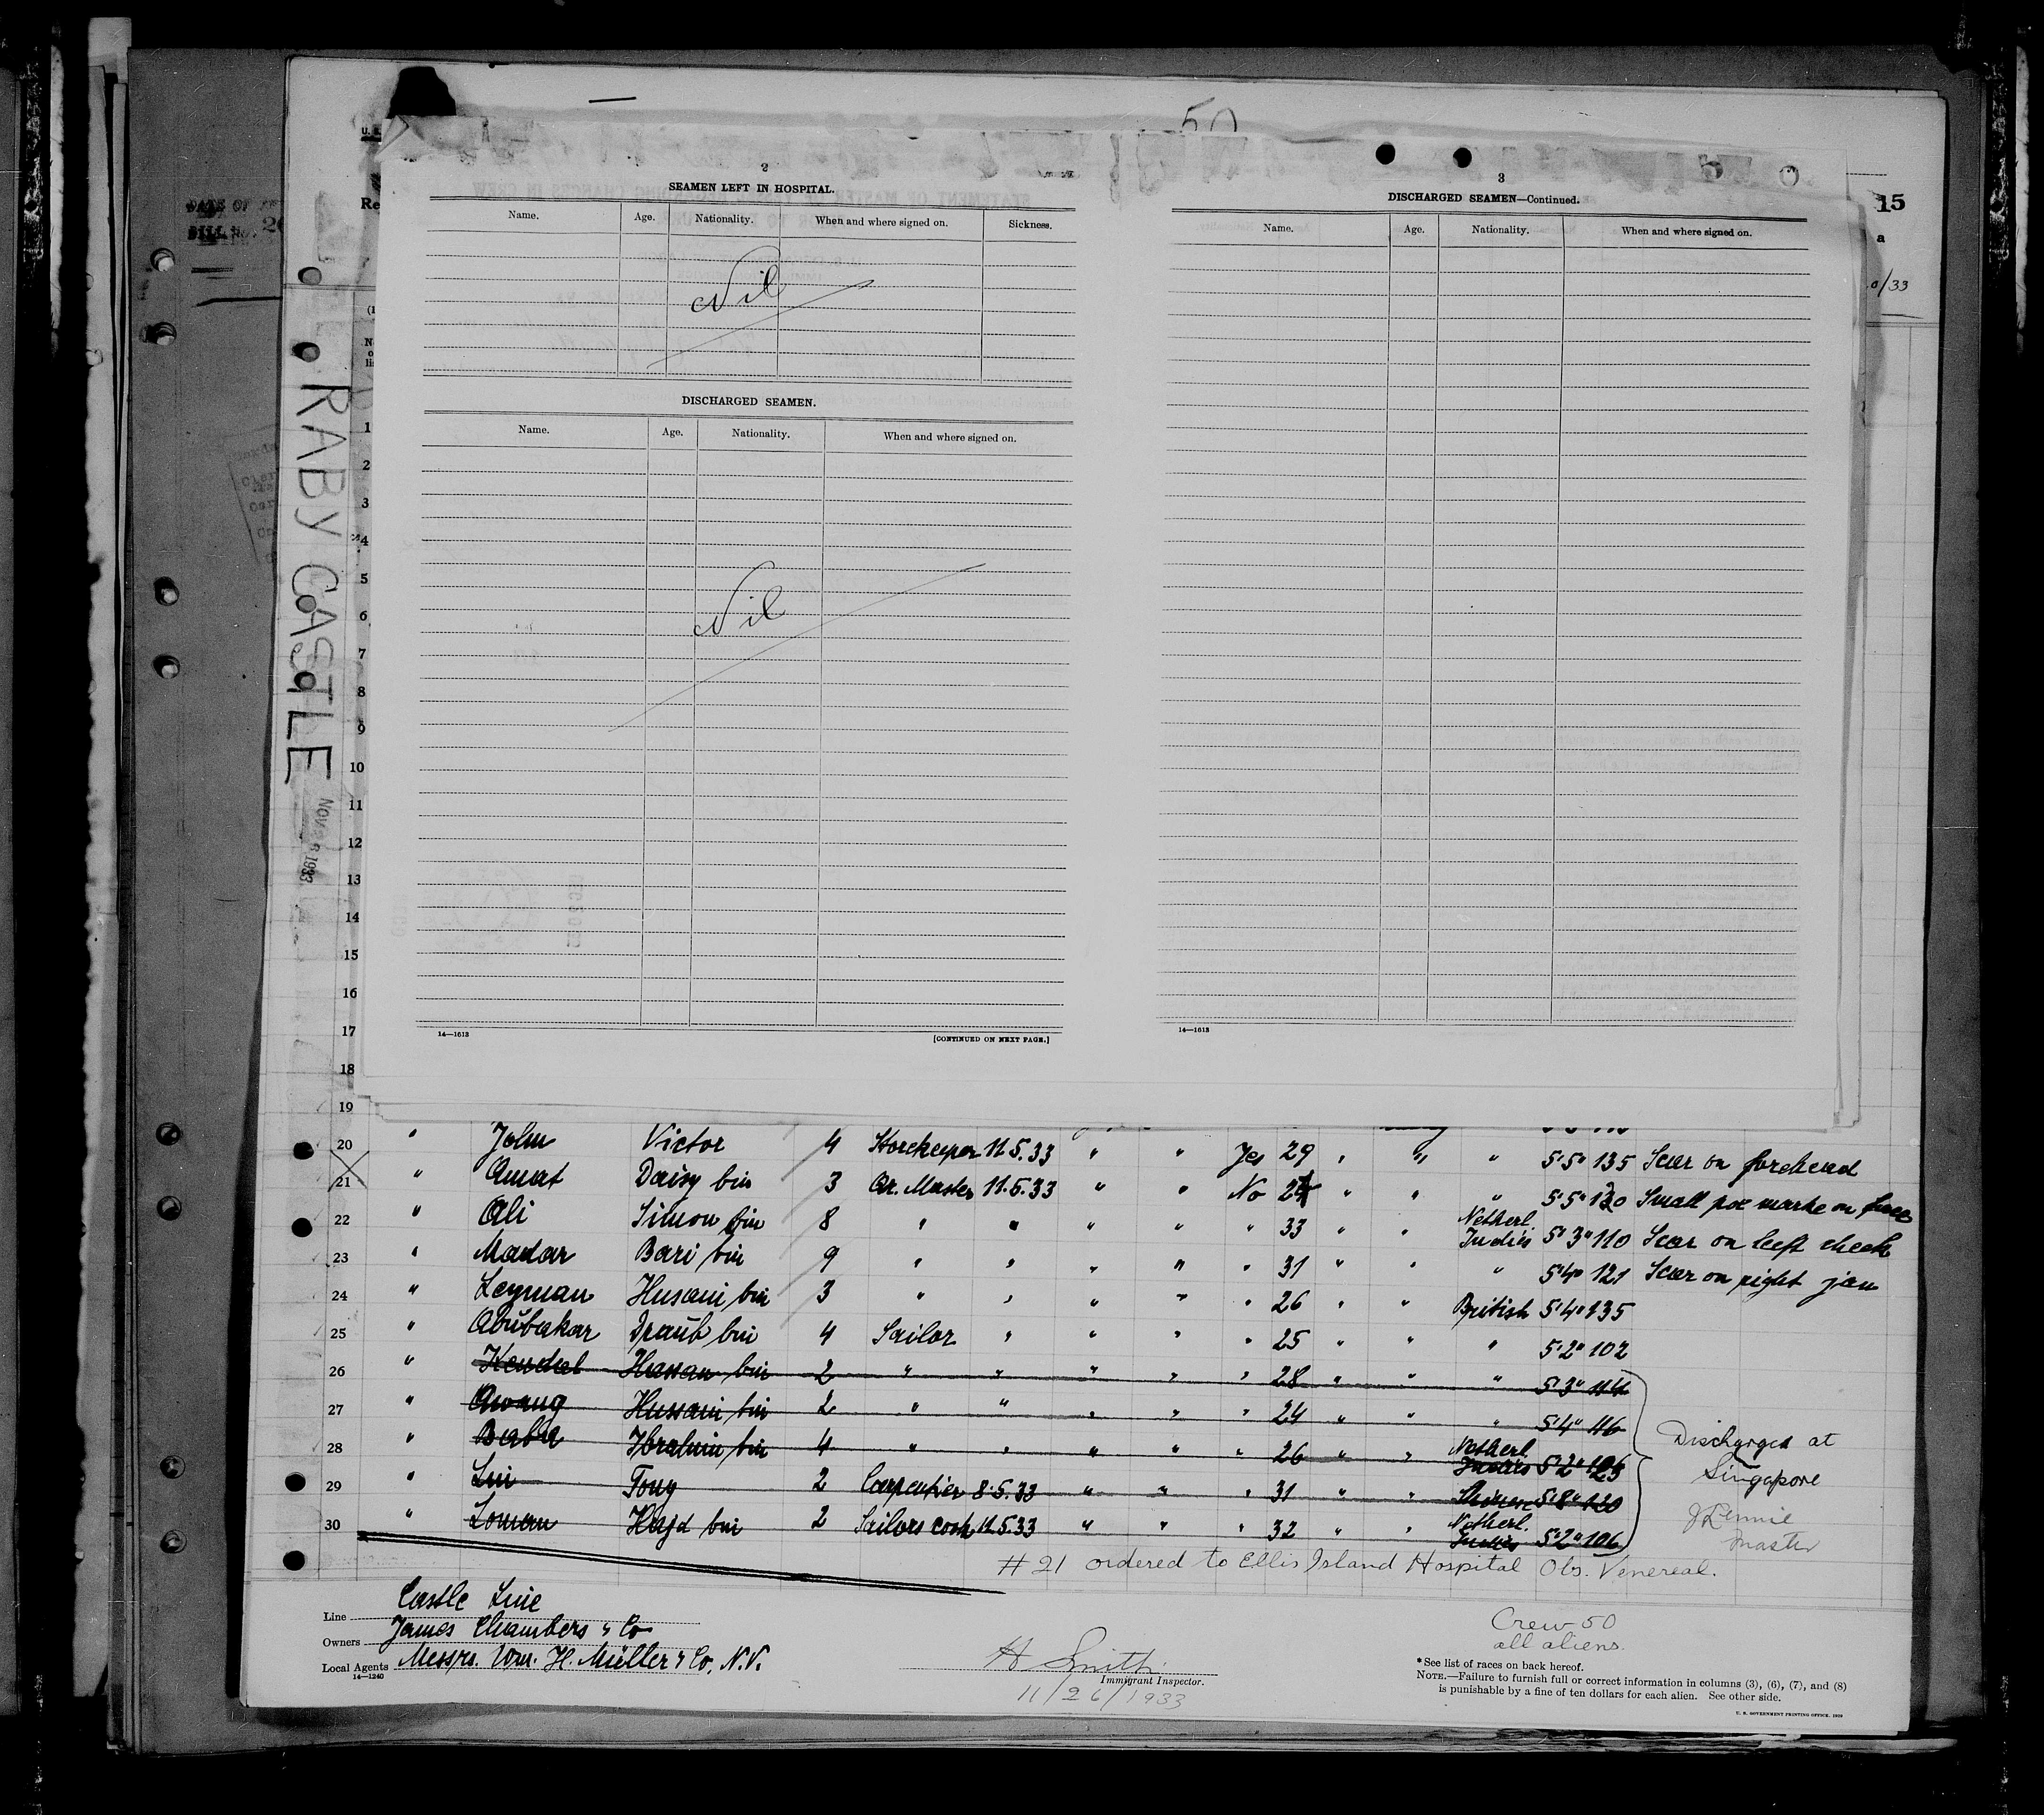 50
2
SEAMEN LEFT IN HOSPITAL.
Name. Age. Nationality. When and where signed on. Sickness.
Nil
DISCHARGED SEAMEN.
Name. Age. Nationality. When and where signed on.
Nil
14—1613 [CONTINUED ON NEXT PAGE.]
3
DISCHARGED SEAMEN—Continued.
Name. Age. Nationality. When and where signed on.
14—1613
15
a
/33
DATE OF
BILL
RABY CASTLE
NOV 1933
1
2
3
4
5
6
7
8
9
10
11
12
13
14
15
16
17
18
19
20 " John Victor 4 Storekeeper 11.5.33 " " Yes 29 " " " 5'5" 135 Scar on forehead
21 " Amat Daisy bin 3 Qr. Master 11.5.33 " " No " " " 5'5" 130 Small pox marks on face
22 " Ali Simon bin 8 " " " " " 33 " " Netherl. Indies 5'3" 110 Scar on left cheek
23 " Madar Bari bin 9 " " " " " 31 " " " 5'4" 121 Scar on right jan
24 " Leyman Husain bin 3 " " " " " 26 " " British 5'4" 135
25 " Abubakar Draub bin 4 Sailor " " " " 25 " " " 5'2" 102
26 " Kendal Hassan bin 2 " " " " " 28 " " " 5'3" 114
27 " Awang Hussain bin 2 " " " " " 24 " " " 5'4" 116
28 " Baba Ibrahim bin 4 " " " " " 26 " " Netherl Indies 5'2"
29 " Lui Tong 2 Carpentier 8.5.33 " " " 31 " " Chinese 5'8" 120
30 " Loman Hajd bin 2 Sailors cook 11.5.33 " " " 32 " " Netherl. Indies 5'2" 106
Discharged at
Singapore
J Lennie
Master
# 21 ordered to Ellis Island Hospital Obs. Venereal.
Line Castle Line
Owners James Chambers & Co
Local Agents Messrs. Wm. H. Müller & Co, N.V.
14—1240
H Smith
Immigrant Inspector.
11/26/1933
Crew 50
all aliens.
* See list of races on back hereof.
NOTE.—Failure to furnish full or correct information in columns (3), (6), (7), and (8)
is punishable by a fine of ten dollars for each alien. See other side.
U. S. GOVERNMENT PRINTING OFFICE.